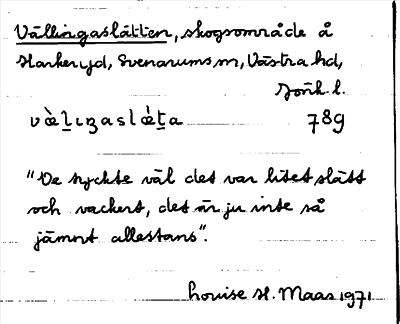 Vällingaslätten, skogsområde å
Harkeryd, Svenarums sn, Västra hd,
Jönk. l.
vὰ̈l̠ıꜫaslæ̀t̠a 789
"De tyckte väl det var litet slätt
och vackert, det är ju inte så
jämnt allestans".
Louise H. Maas 1971